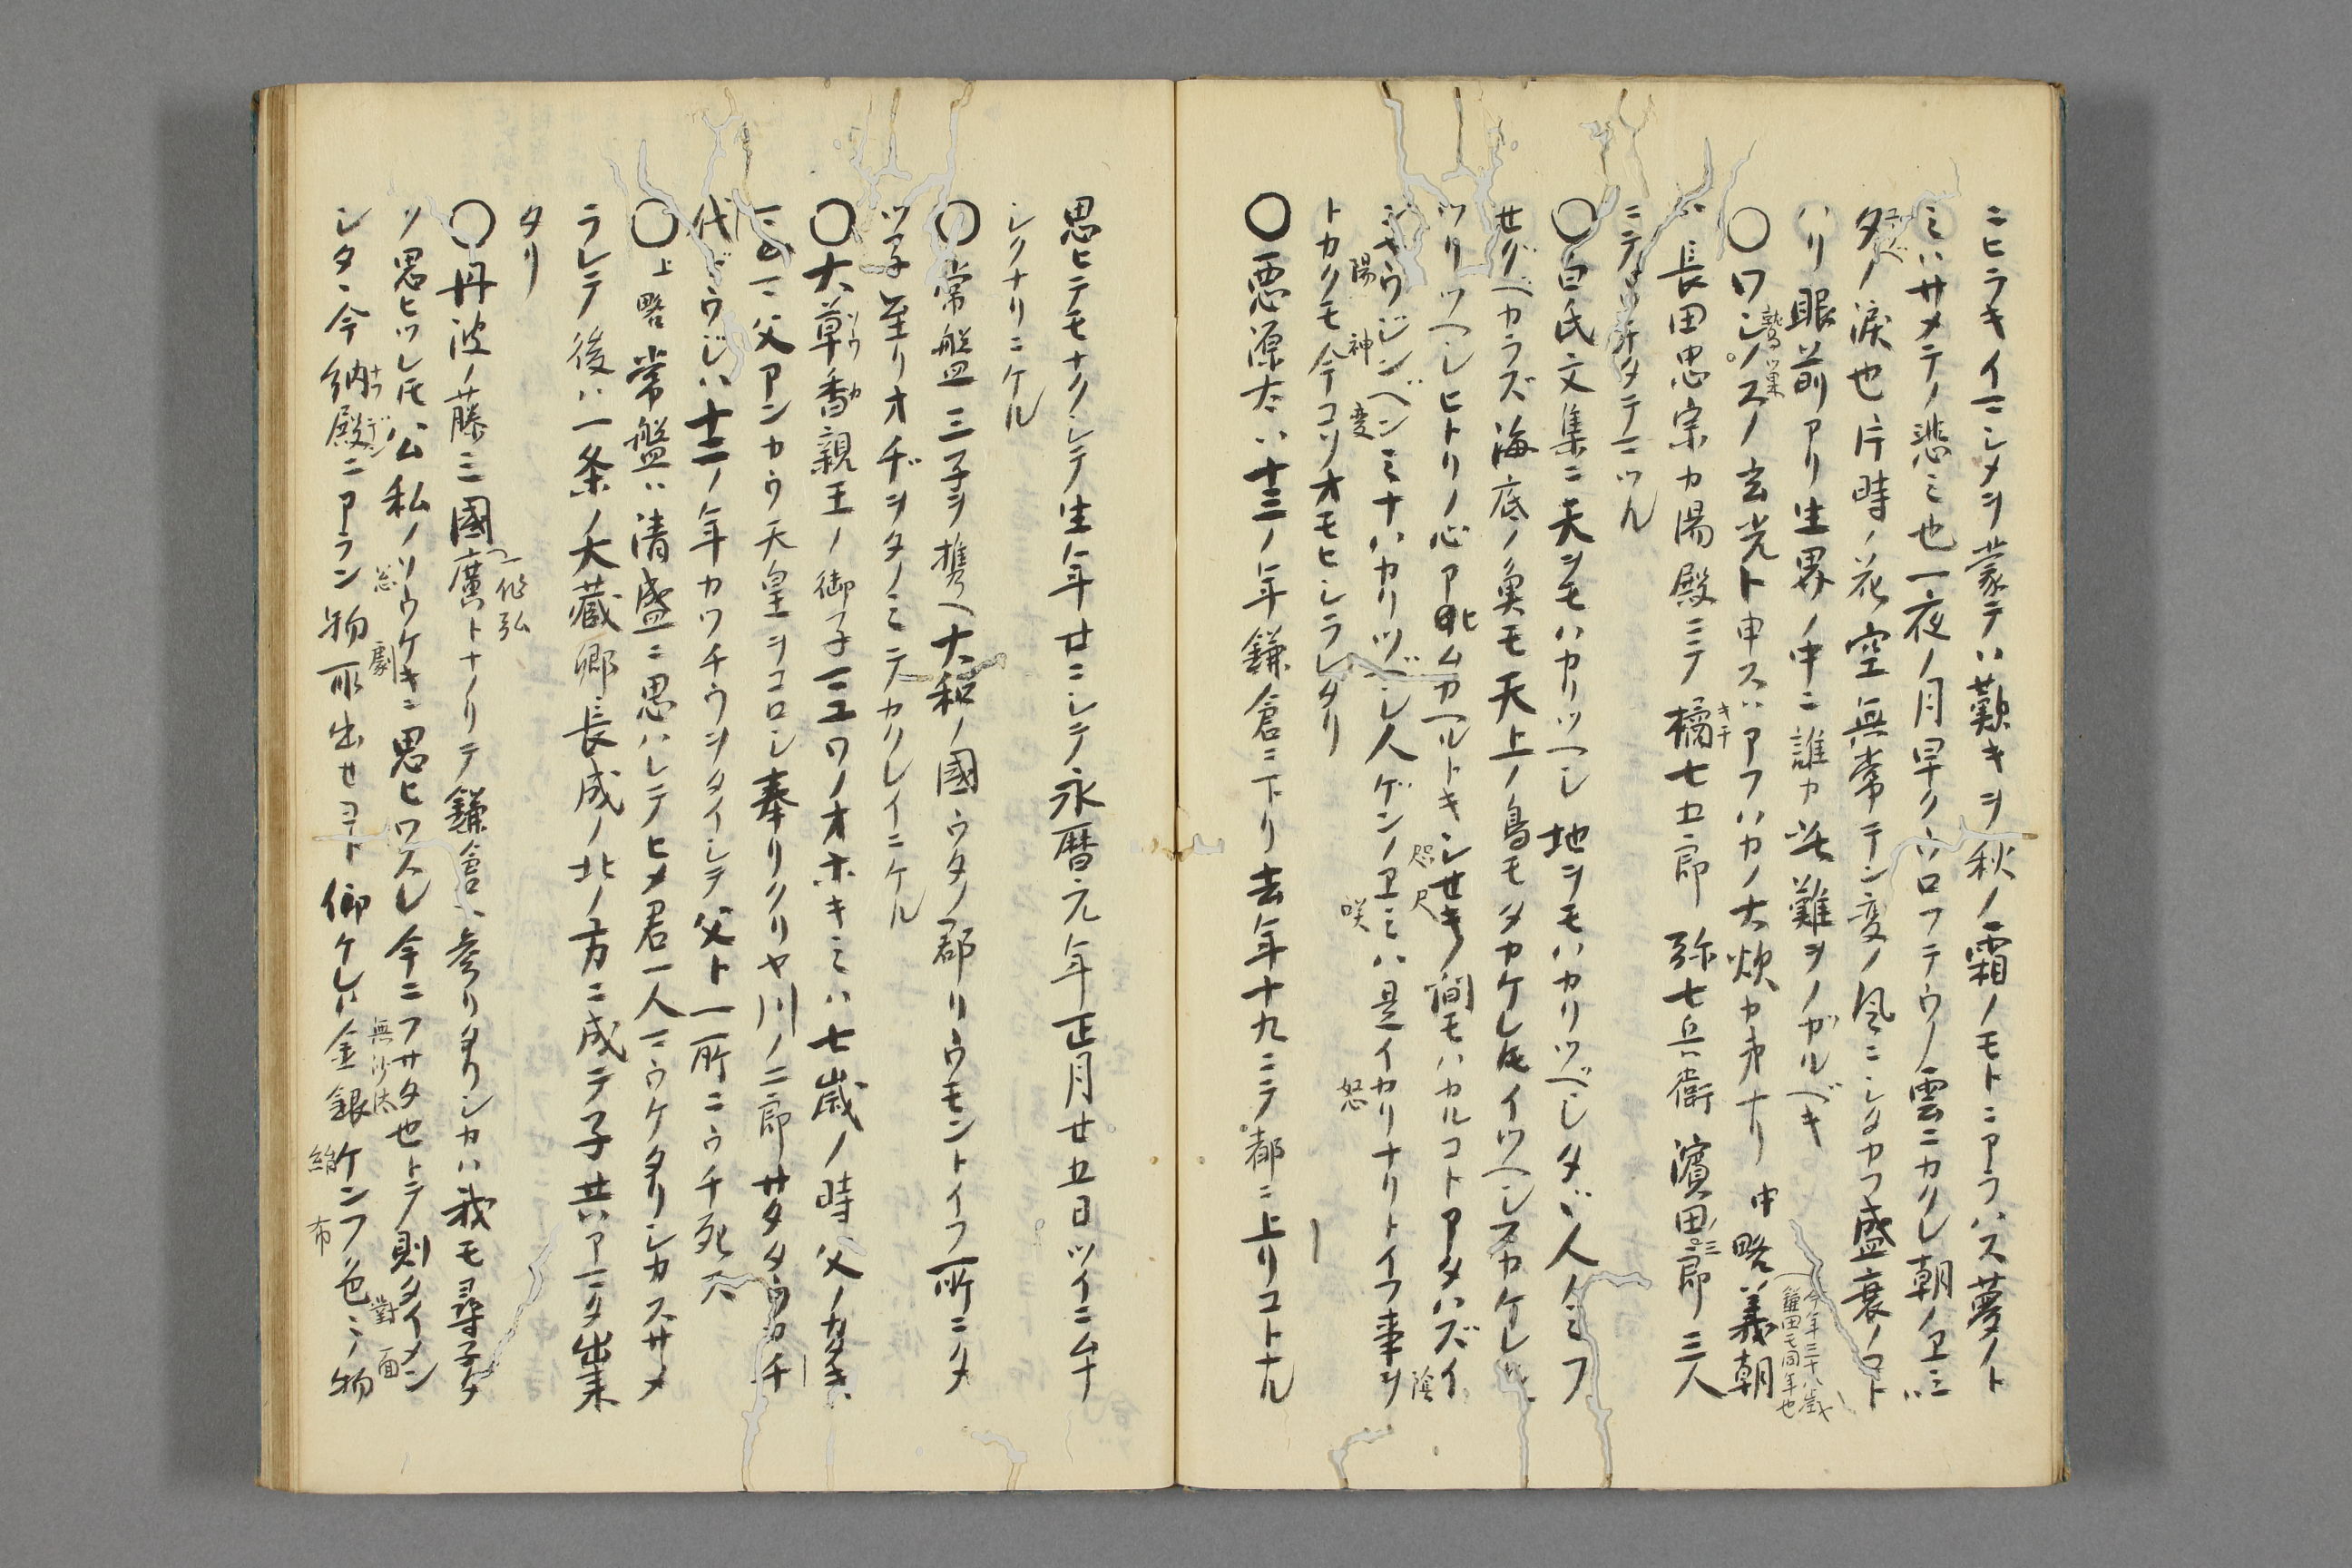 ニヒラキイマシメヲ蒙テハ歎キヲ秋ノ霜ノモトニアラハス夢ノト
ミハサメテノ悲ミ也一夜ノ月早クウツロフテウノ雲ニカクレ朝ノヱミハ
夕ノ涙也片時ノ花空無常テン変ノ風ニシタカフ盛衰ノコト
ハリ眼前アリ生界ノ中ニ誰カ此難ヲノガルベキ
〇ワシノスノ玄光ト申スハアフハカノ大炊カ弟ナリ 中略 義朝
今年三十八歳
鎌田モ同年也
鷲巣
ハ長田忠宗カ湯殿ニテ橘七五郎 弥七兵衛 濱田三郎 三人
キチ
ニテ
〇白氏文集ニ天ヲモハカリツヘシ地ヲモハカリツベシタヾ人ノミフ
セグベカラズ海底ノ魚モ天上ノ鳥モタカケレ𪜈イツヘシフカケレハ
ツリツヘシヒトリノ心アヒムカヘルトキシセキノ間モハカルコトアタハズイ
咫尺
陰
ミヤウジンベンミナハカリツベシ人ゲンノヱミハ是イカリナリトイフ事ヲ
陽 神 変
咲
怒
トカクモ今コソオモヒシラレタリ
〇悪源太ハ十三ノ年鎌倉ニ下リ去年十九ニテ都ニ上リコトナル
思ヒテモナクシテ生年廿ニシテ永暦元年正月廿五日ツイニムナ
シクナリニケル
〇常盤三子ヲ携ヘ大和ノ國ウタノ郡リウモントイフ所ニタ
ツ子至リオヂヲタノミテカクレイニケル
〇大草香親王ノ御子マユワノオホキミハ七歳ノ時父ノカタキ
ソウ カ
ニ父アンカウ天皇ヲコロシ奉リクリヤ川ノ二郎サタタウカチ
代ドウジハ十二ノ年カワチウヲタイシテ父ト一所ニウチ死ス
〇上略 常盤ハ清盛ニ思ハレテヒメ君一人マウケタリシカスサメ
ラレテ後ハ一条ノ大蔵卿長成ノ北ノ方ニ成テ子共アマタ出来
タリ
〇丹波ノ藤三國廣トナノリテ鎌倉ヘ参リタリシカハ我モ尋子タ
一作弘
ク思ヒツレ𪜈公私ノソウケキニ思ヒワスレ今ニフサタ也トテ則タイメン
怱 劇
無沙汰
對面
シタヽ今納殿ニアラン物取出セヨト仰ケレハ金銀ケンフ色ミノ物
ナツデン
絹 布